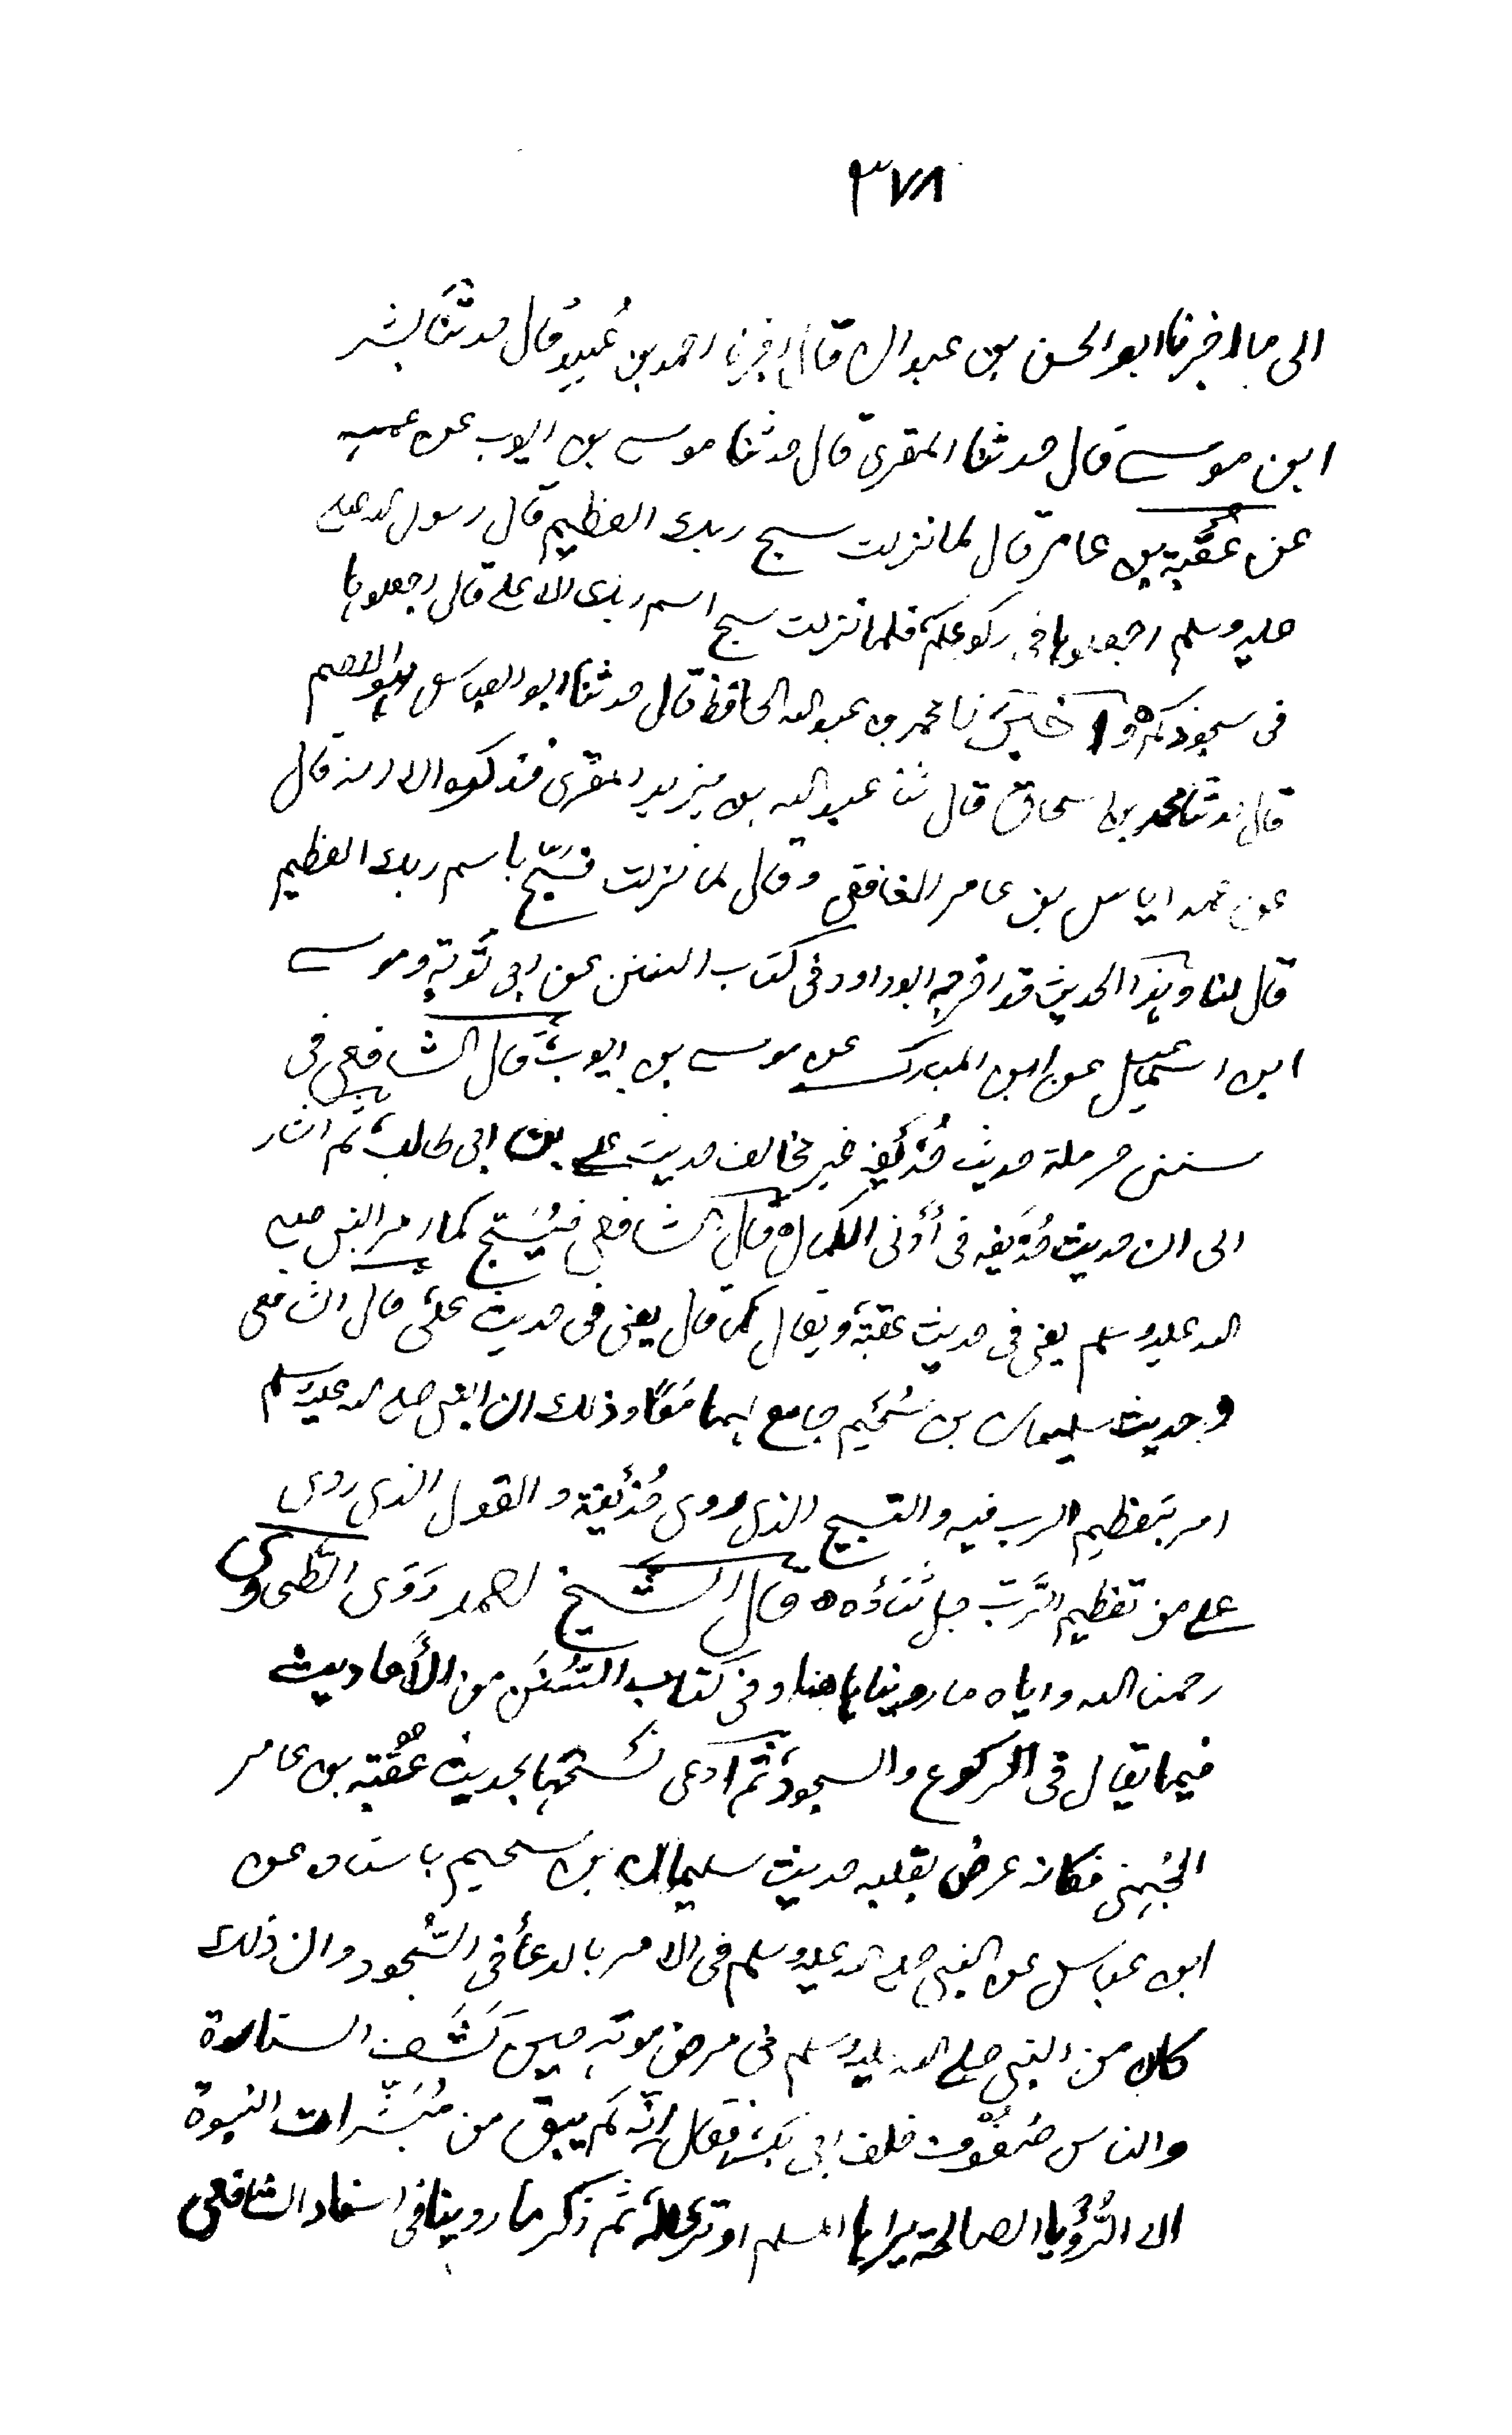 ٣٧٨
الى ما اخبرنا ابو الحسن بن عبدان قال اخبرنا احمد بن عُبيد قال حدثنا بشر
ابن موسى قال حدثنا المقرى قال حدثنا موسى بن ايوب عن عمه
عن عُقْبة بن عامر قال لما نزلت سبح ربك العظيم قال رسول الله صلى
عليه وسلم اجعلوها فى ركوعكم فلما نزلت سبح اسم ربك الاعلى قال اجعلوها
فى سجودكم واخبرنا محمد بن عبد الله الحافظ قال حدثنا ابو العباس هو الاصم
قال حدثنا محمد بن اسحاق قال ثنا عبد الله بن يزيد المقرى فذكره الا انه قال
عن عمه اياس بن عامر الغافقى وقال لما نزلت فسَبّح باسم ربك العظيم
قال لنا وهذا الحديث قد اخرجه ابو داود فى كتاب السنن عن ابى تَوْبة وموسى
ابن اسمعيل عن ابن المبارك عن موسى بن ايوب قال الشافعى فى
سنن حرملة حديث حُذَيفه غير مخالف حديث على بن ابى طالب ثم اشار
الى ان حديث حُذَيفه فى أدنى الكمال قال الشافعى فيُسَبّح كما امر النبى صلى
الله عليه وسلم يعنى فى حديث عقبة ويقال كما قال يعنى فى حديث على قال الشافعى
وحديث سليمان بن سُحَيم جامع لهما مَعًا وذلك ان النبى صلى الله عليه وسلم
امر بتعظيم الرب فيه والتسبيح الذى روى حُذَيفة والقول الذى روى
على من تعظيم الرَّبّ جل ثناؤه قال الشيخ احمد رَوَى الطحاوى
رحمنا الله واياه ما روينا هاهنا وفى كتاب السُّنَن من الأحاديث
فيما يقال فى الركوع والسجود ثُمَّ ادعى نسخها بحديث عُقْبة بن عامر
الجُهنى فكانه عرض بقلبه حديث سليمان بن سحيم باسناده عن
ابن عباس عن النبى صلى الله عليه وسلم فى الامر بالدعاء فى السُّجود وان ذلك
كان من النبى صلى الله عليه وسلم فى مرض موته حين كَشَف الستارة
والناس صُفُوف خلف ابى بكر فقال انّه لم يبق من مُبَشّرات النبوة
الا الرُّؤْيا الصالحة يراها المسلم او ترى له ثم ذكر ما روينا فى اسناد الشافعى